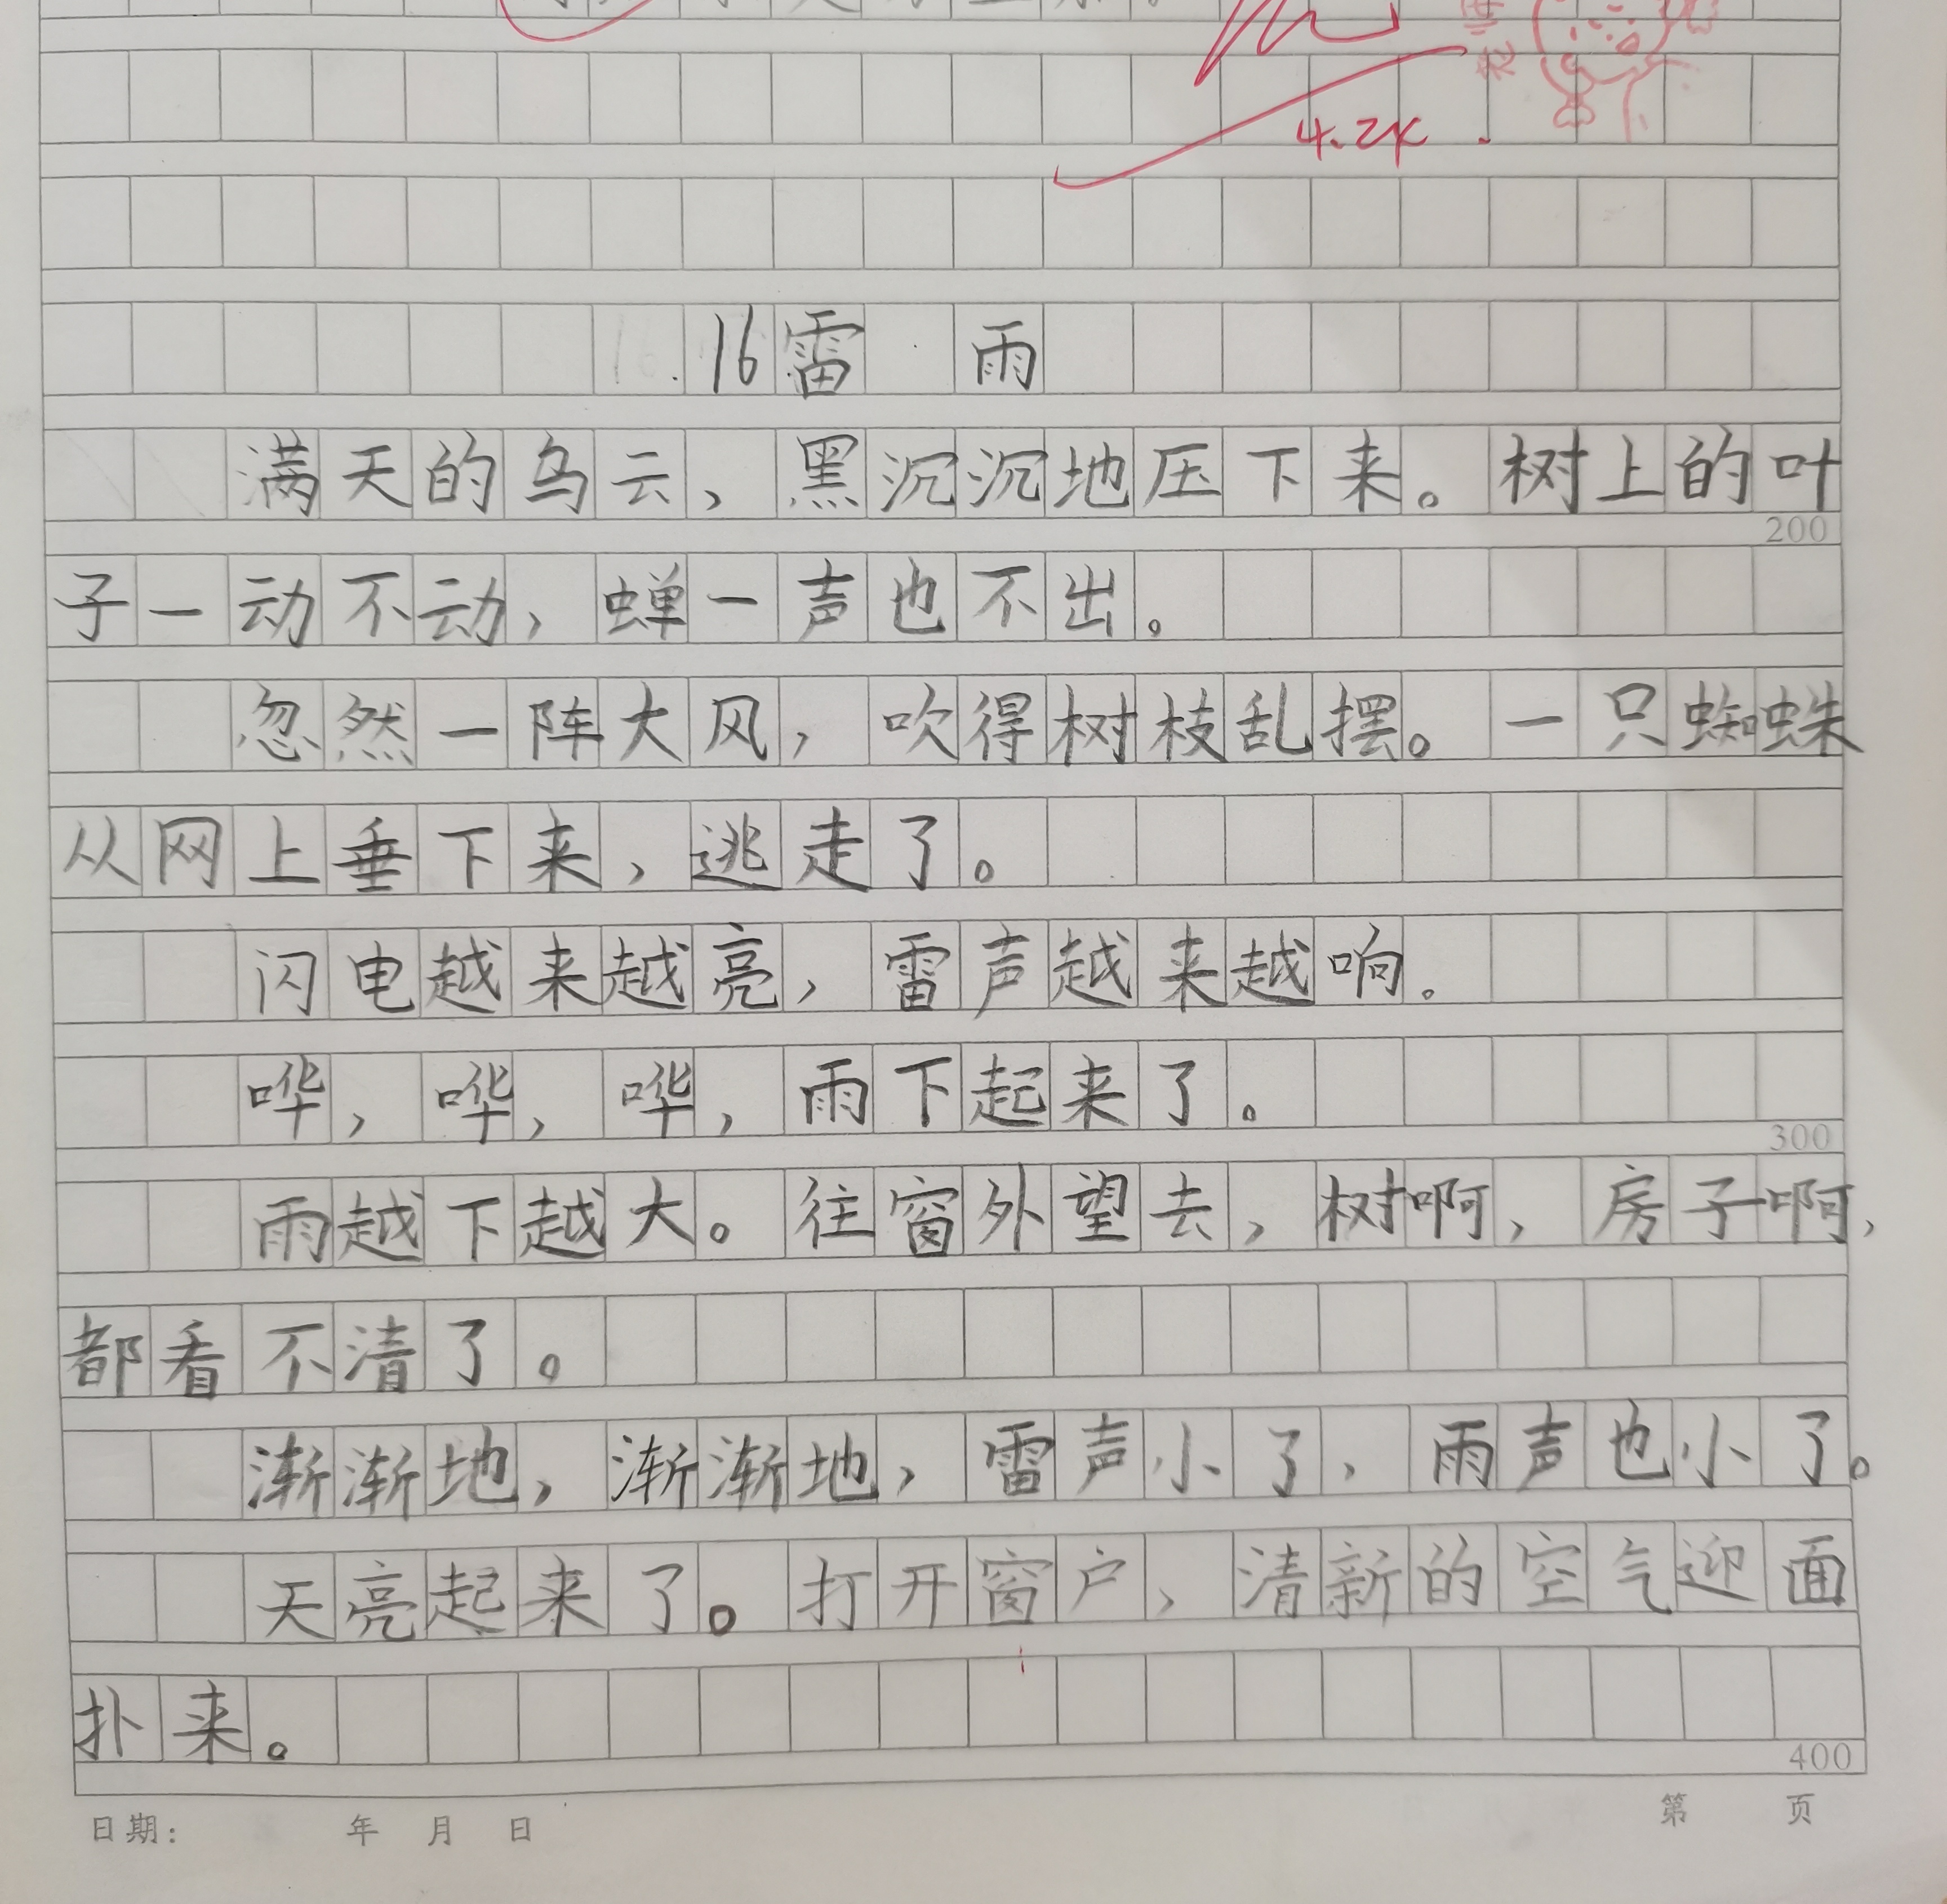 4.2K
16雷 雨
满天的乌云，黑沉沉地压下来。树上的叶
200
子一动不动，蝉一声也不出。
忽然一阵大风，吹得树枝乱摆。一只蜘蛛
从网上垂下来，逃走了。
闪电越来越亮，雷声越来越响。
哗，哗，哗，雨下起来了。
300
雨越下越大。往窗外望去，树啊，房子啊，
都看不清了。
渐渐地，渐渐地，雷声小了，雨声也小了。
天亮起来了。打开窗户，清新的空气迎面
扑来。
400
日期： 年 月 日 第 页